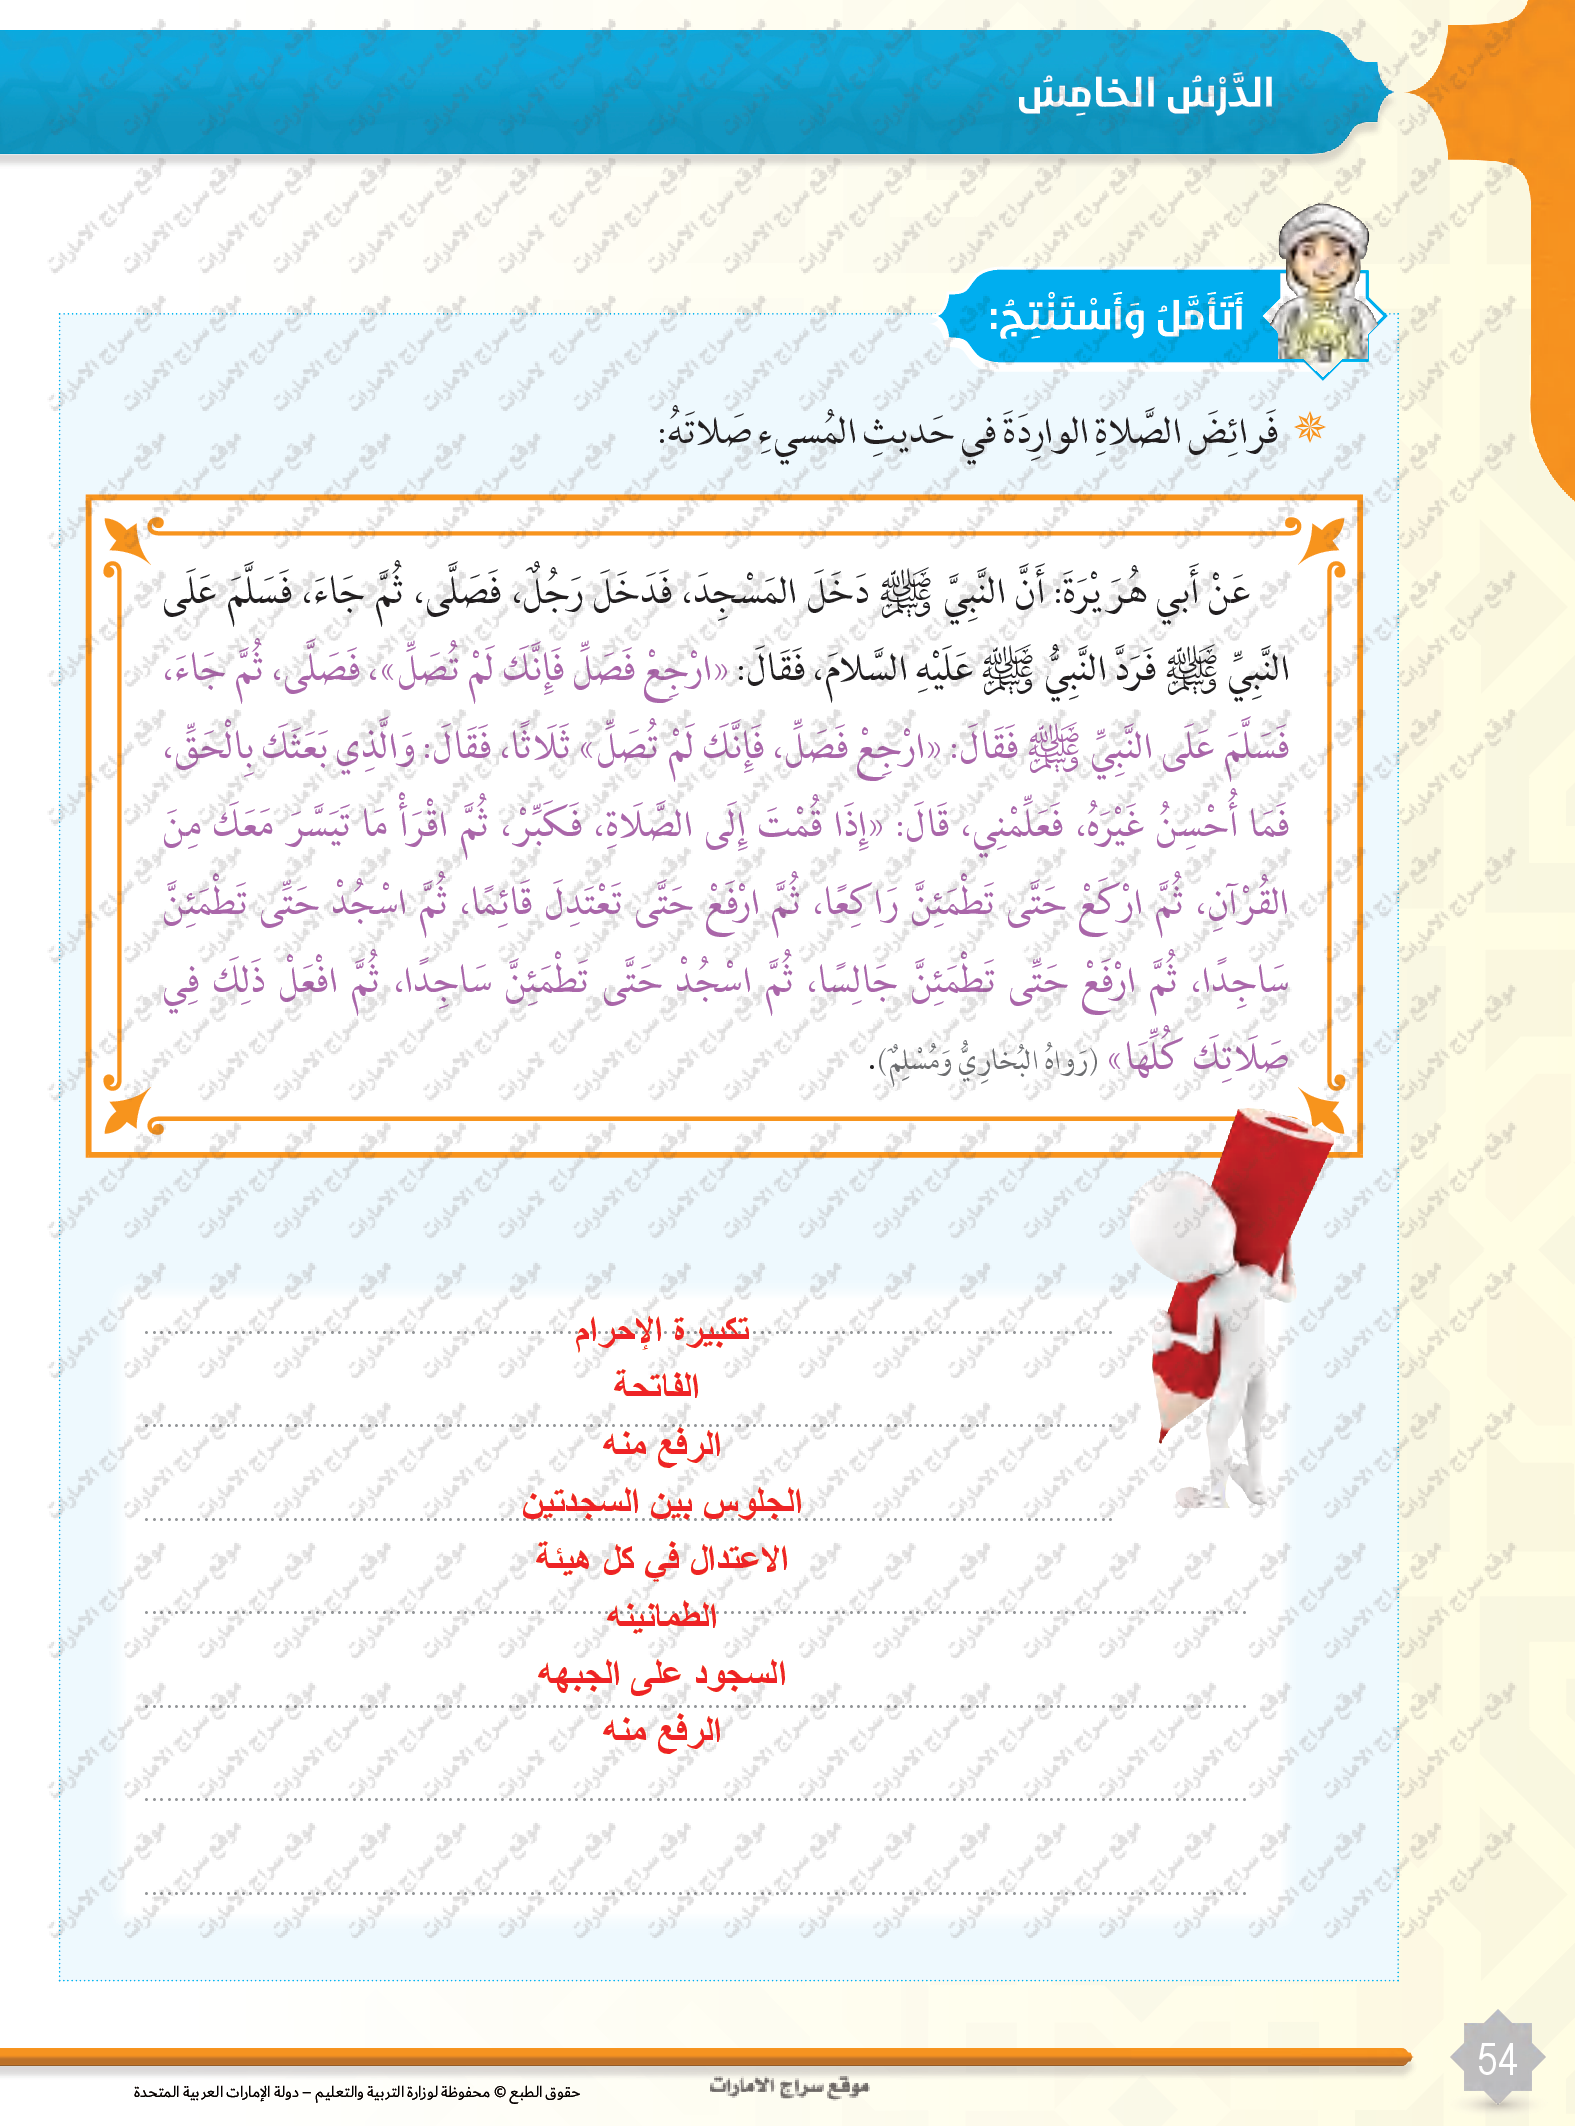 الدَّرْسُ الخامِسُ
أَتَأَمَّلُ وَأَسْتَنْتِجُ:
فَرائِضَ الصَّلاةِ الوارِدَةَ في حَديثِ المُسيءِ صَلاتَهُ:
عَنْ أَبي هُرَيْرَةَ: أَنَّ النَّبِيَّ ﷺ دَخَلَ المَسْجِدَ، فَدَخَلَ رَجُلٌ، فَصَلَّى، ثُمَّ جَاءَ، فَسَلَّمَ عَلَى
النَّبِيِّ ﷺ فَرَدَّ النَّبِيُّ ﷺ عَلَيْهِ السَّلامَ، فَقَالَ: «ارْجِعْ فَصَلِّ فَإِنَّكَ لَمْ تُصَلِّ»، فَصَلَّى، ثُمَّ جَاءَ،
فَسَلَّمَ عَلَى النَّبِيِّ ﷺ فَقَالَ: «ارْجِعْ فَصَلِّ، فَإِنَّكَ لَمْ تُصَلِّ» ثَلَاثًا، فَقَالَ: وَالَّذِي بَعَثَكَ بِالْحَقِّ،
فَمَا أُحْسِنُ غَيْرَهُ، فَعَلِّمْنِي، قَالَ: «إِذَا قُمْتَ إِلَى الصَّلَاةِ، فَكَبِّرْ، ثُمَّ اقْرَأْ مَا تَيَسَّرَ مَعَكَ مِنَ
القُرْآنِ، ثُمَّ ارْكَعْ حَتَّى تَطْمَئِنَّ رَاكِعًا، ثُمَّ ارْفَعْ حَتَّى تَعْتَدِلَ قَائِمًا، ثُمَّ اسْجُدْ حَتَّى تَطْمَئِنَّ
سَاجِدًا، ثُمَّ ارْفَعْ حَتَّى تَطْمَئِنَّ جَالِسًا، ثُمَّ اسْجُدْ حَتَّى تَطْمَئِنَّ سَاجِدًا، ثُمَّ افْعَلْ ذَلِكَ فِي
صَلَاتِكَ كُلِّهَا» (رَواهُ البُخارِيُّ وَمُسْلِمٌ).
تكبيرة الإحرام
الفاتحة
الرفع منه
الجلوس بين السجدتين
الاعتدال في كل هيئة
الطمانينه
السجود على الجبهه
الرفع منه
54
موقع سراج الامارات
حقوق الطبع © محفوظة لوزارة التربية والتعليم – دولة الإمارات العربية المتحدة